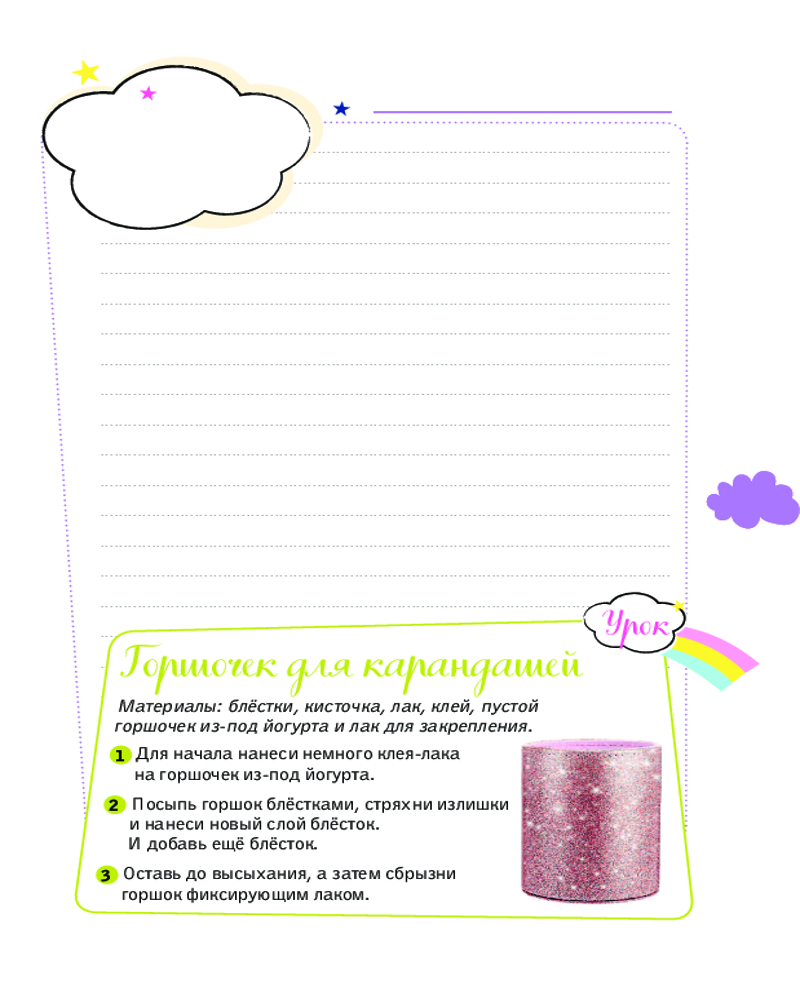 Урок
Горшочек для карандашей
Материалы: блёстки, кисточка, лак, клей, пустой
горшочек из-под йогурта и лак для закрепления.
1 Для начала нанеси немного клея-лака
на горшочек из-под йогурта.
2 Посыпь горшок блёстками, стряхни излишки
и нанеси новый слой блёсток.
И добавь ещё блёсток.
3 Оставь до высыхания, а затем сбрызни
горшок фиксирующим лаком.